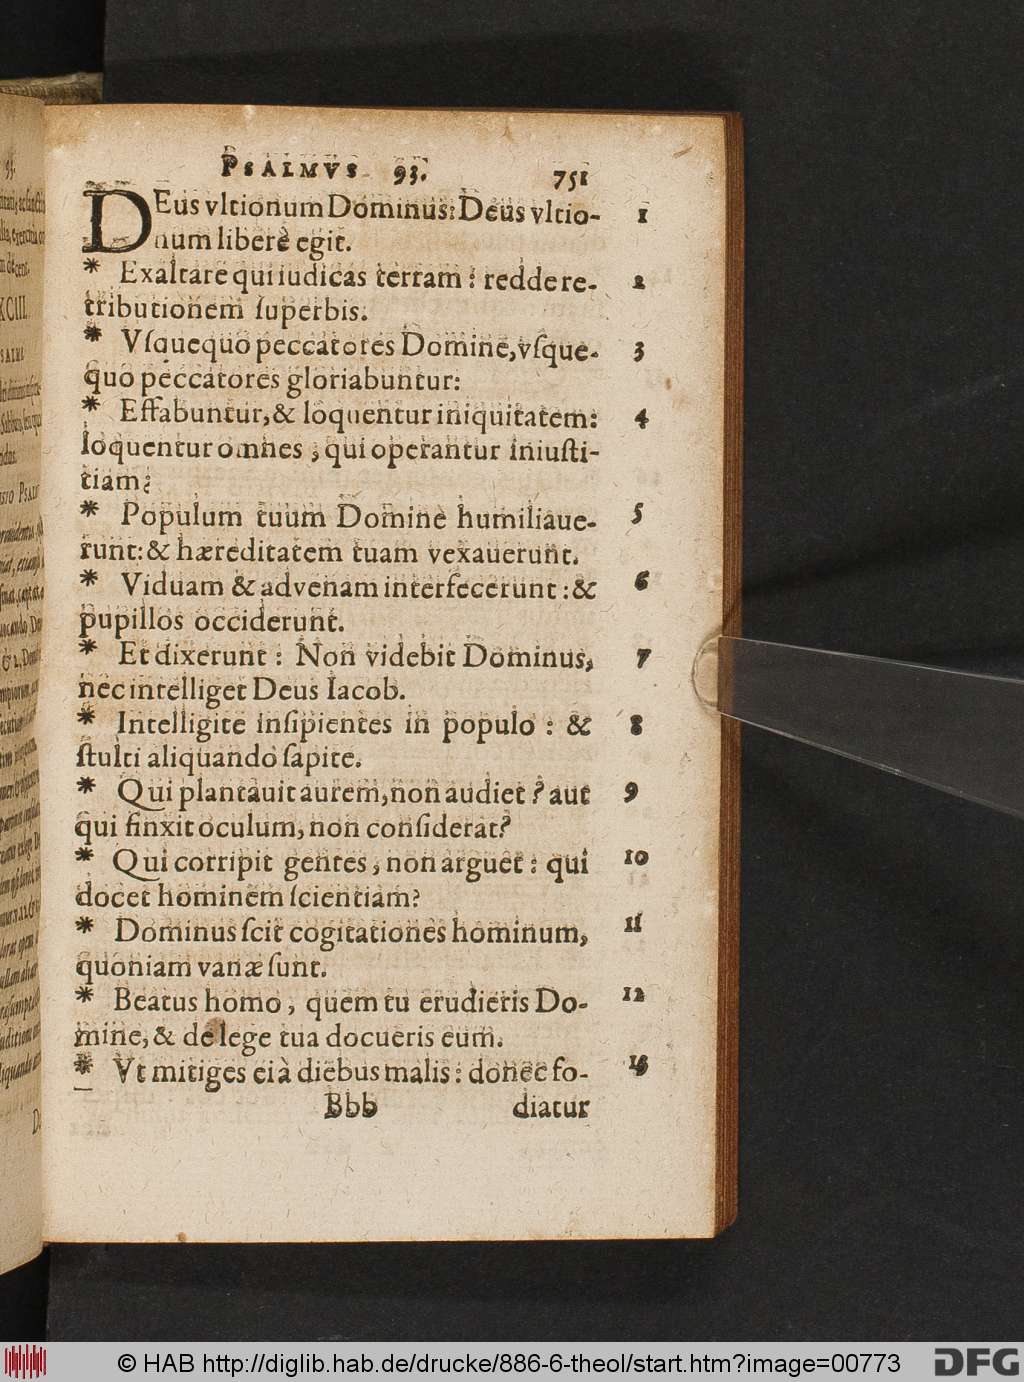 PSALMVS 93. 751
DEus vltionum Dominus: Deus vltio- 1
num liberè egit.
* Exaltare qui iudicas terram: redde re- 2
tributionem ſuperbis.
* Vſquequo peccatores Domine, vſque- 3
quo peccatores gloriabuntur:
* Effabuntur, & loquentur iniquitatem: 4
loquentur omnes, qui operantur iniuſti-
tiam?
* Populum tuum Domine humiliaue- 5
runt: & hæreditatem tuam vexauerunt.
* Viduam & advenam interfecerunt: & 6
pupillos occiderunt.
* Et dixerunt: Non videbit Dominus, 7
nec intelliget Deus Iacob.
* Intelligite inſipientes in populo: & 8
ſtulti aliquando ſapite.
* Qui plantauit aurem, non audiet? aut 9
qui finxit oculum, non conſiderat?
* Qui corripit gentes, non arguet: qui 10
docet hominem ſcientiam?
* Dominus ſcit cogitationes hominum, 11
quoniam vanæ ſunt.
* Beatus homo, quem tu erudieris Do- 12
mine, & de lege tua docueris eum.
* Vt mitiges ei à diebus malis: donec fo- 13
Bbb diatur
© HAB http://diglib.hab.de/drucke/886-6-theol/start.htm?image=00773 DFG